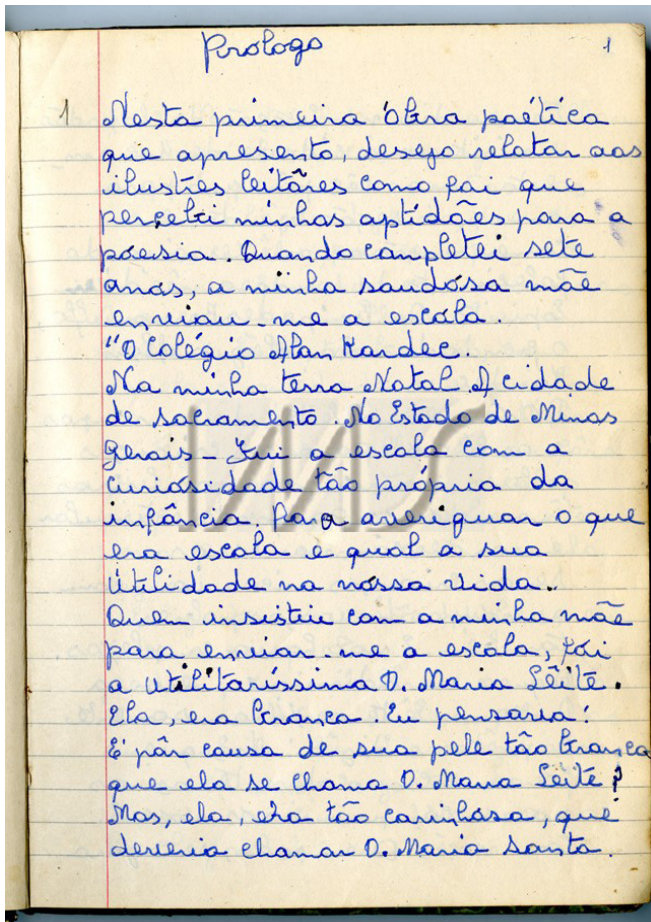 Prologo 1
1 Nesta primeira óbra poética
que apresento, desejo relatar aos
ilustres leitôres como foi que
percebi minhas aptidões para a
poesia. Quando completei sete
anos, a minha saudósa mãe
enviou-me a escóla.
"O Colégio Alan Kardec.
Na minha terra Natal. A cidade
de Sacramento. No Estado de Minas
Gerais - Fui a escola com a
curiósidade tão própria da
infância. Para averiguar o que
era escola e qual a sua
Utilidade na nóssa vida.
Quem insistiu com a minha mãe
para enviar-me a escóla, foi
a utilitaríssima D. Maria Lêite.
Ela, era branca. Eu pensava!
É pôr causa de sua pele tão branca
que ela se chama D. Maria Lêite?
Mas, ela, era tão carinhósa, que
deveria chamar D. Maria Santa.
IMS